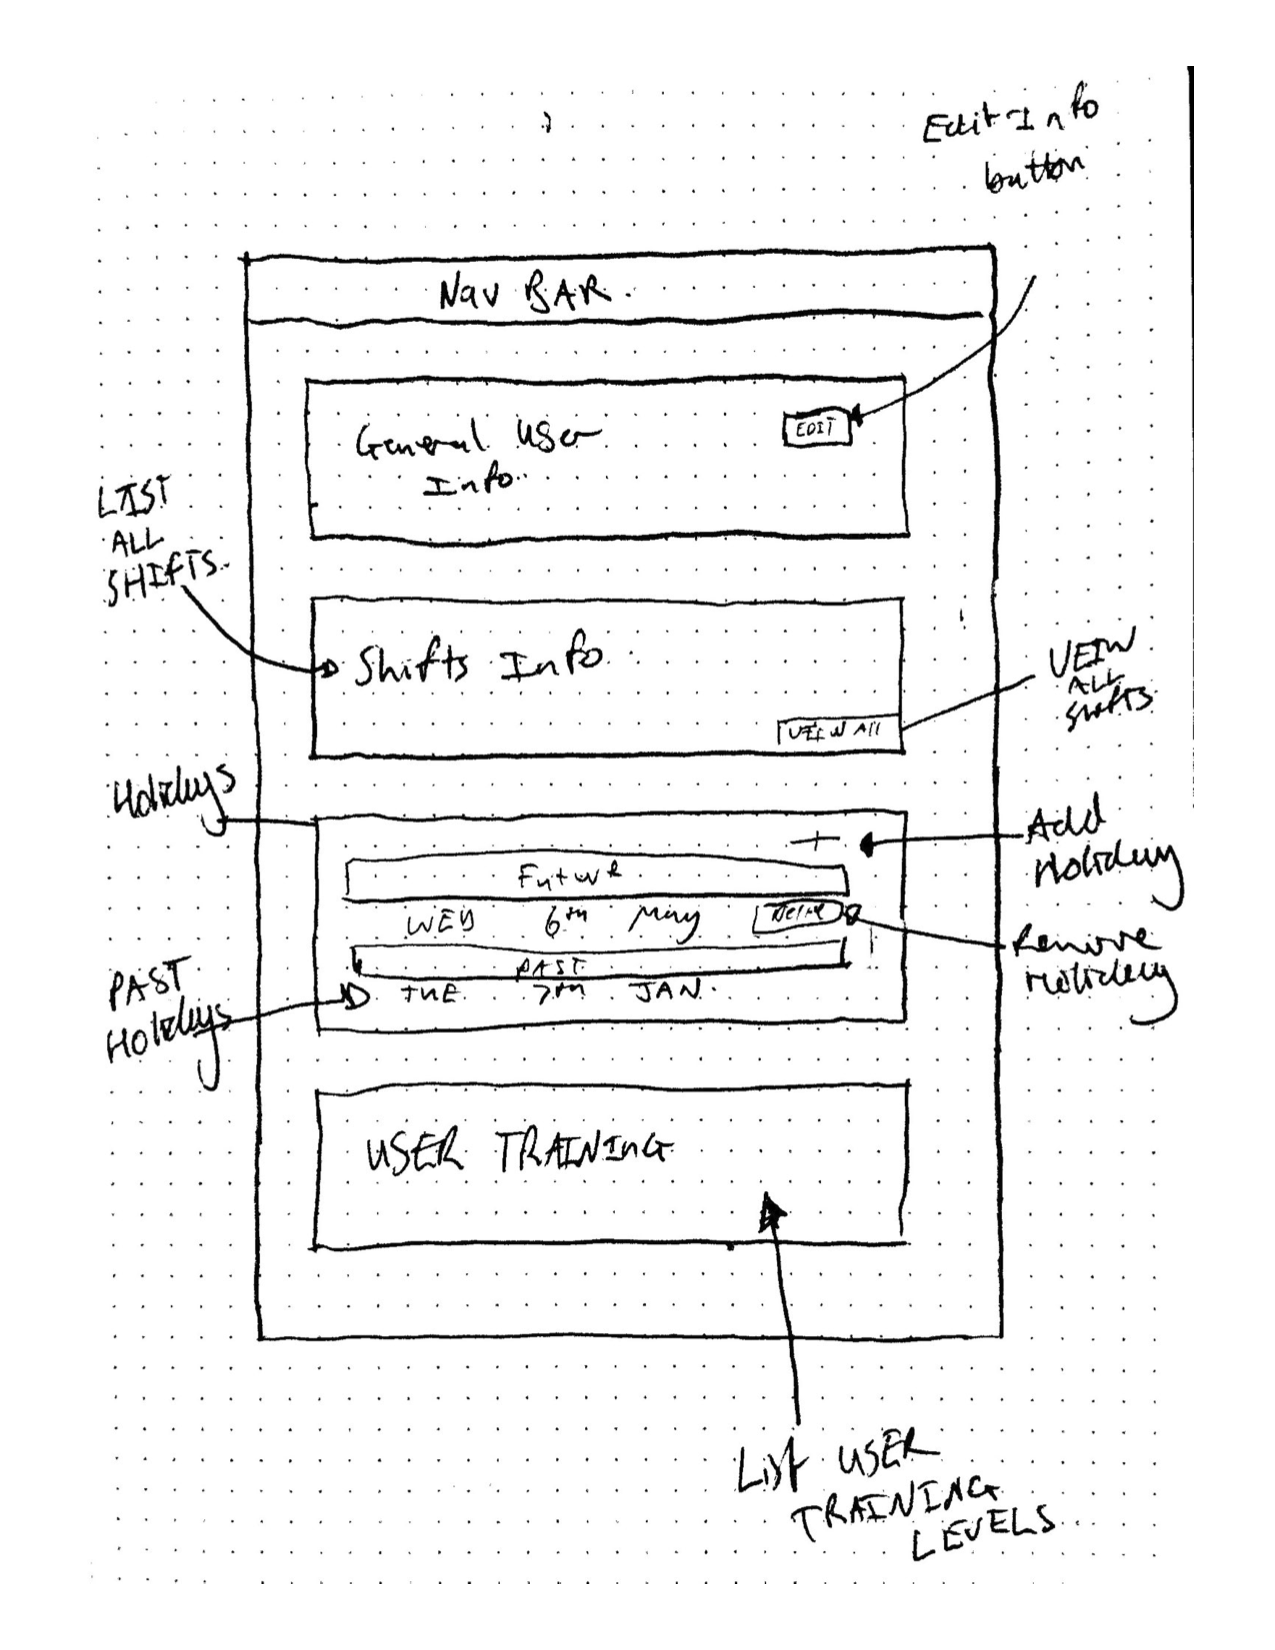 Edit Info
button
Nav BAR.
General User
Info.
EDIT
LIST
ALL
SHIFTS.
Shifts Info
VEIW All
VEIW
ALL
Shifts
Holidays
+
Add
Holiday
Future
WED 6th May
Remove
Holiday
PAST
TUE 7th JAN.
PAST
Holidays
USER TRAINING
List USER
TRAINING
LEVELS